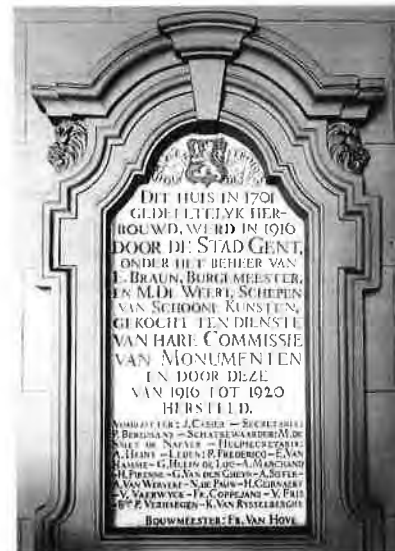 DIT HUIS IN 1701
GEDEELTELYK HER-
BOUWD, WERD IN 1916
DOOR DE STAD GENT,
ONDER HET BEHEER VAN
E. BRAUN, BURGEMEESTER,
EN M. DE WEERT, SCHEPEN
VAN SCHOONE KUNSTEN,
GEKOCHT TEN DIENSTE
VAN HARE COMMISSIE
VAN MONUMENTEN
EN DOOR DEZE
VAN 1916 TOT 1920
HERSTELD.
VOORZITTER: J. CASIER – SECRETARIS:
P. BERGMANS – SCHATBEWAARDER: M. DE
SMET DE NAEYER – HULPSECRETARIS:
A. HEINS – LEDEN: P. FREDERICQ – E. VAN
HAMME – G. HULIN DE LOO – A. MARCHAND
– H. PIRENNE – G. VAN DEN GHEYN – A. SIFFER –
A. VAN WERVEKE – N. DE PAUW – H. GEIRNAERT
– V. VAERWYCK – FR. COPPEJANS – V. FRIS
– P. VERHAEGEN – K. VAN RYSSELBERGHE
BOUWMEESTER: FR. VAN HOVE